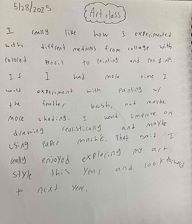 5/28/2025
Art class
I really like how I experimented
with different mediums from collage with
colored pencil to printing and
If I had more time I
would experiment with painting w/
the brush, and maybe
more shading. I would improve on
drawing realistically and maybe
using paper mache. That said I
really enjoyed exploring my art
style this year and look forward
to next year.